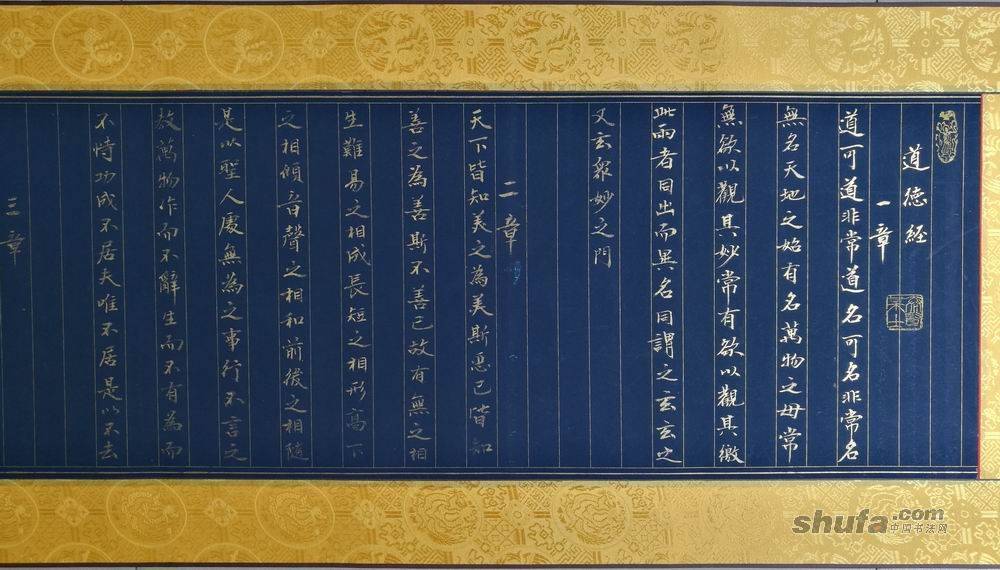 道德經
一章
道可道非常道名可名非常名
無名天地之始有名萬物之母常
無欲以觀其妙常有欲以觀其徼
此兩者同出而異名同謂之玄玄之
又玄眾妙之門
二章
天下皆知美之為美斯惡已皆知
善之為善斯不善已故有無之相
生難易之相成長短之相形高下
之相傾音聲之相和前後之相隨
是以聖人處無為之事行不言之
教萬物作而不辭生而不有為而
不恃功成不居夫唯不居是以不去
三章
shufa.com
中国书法网